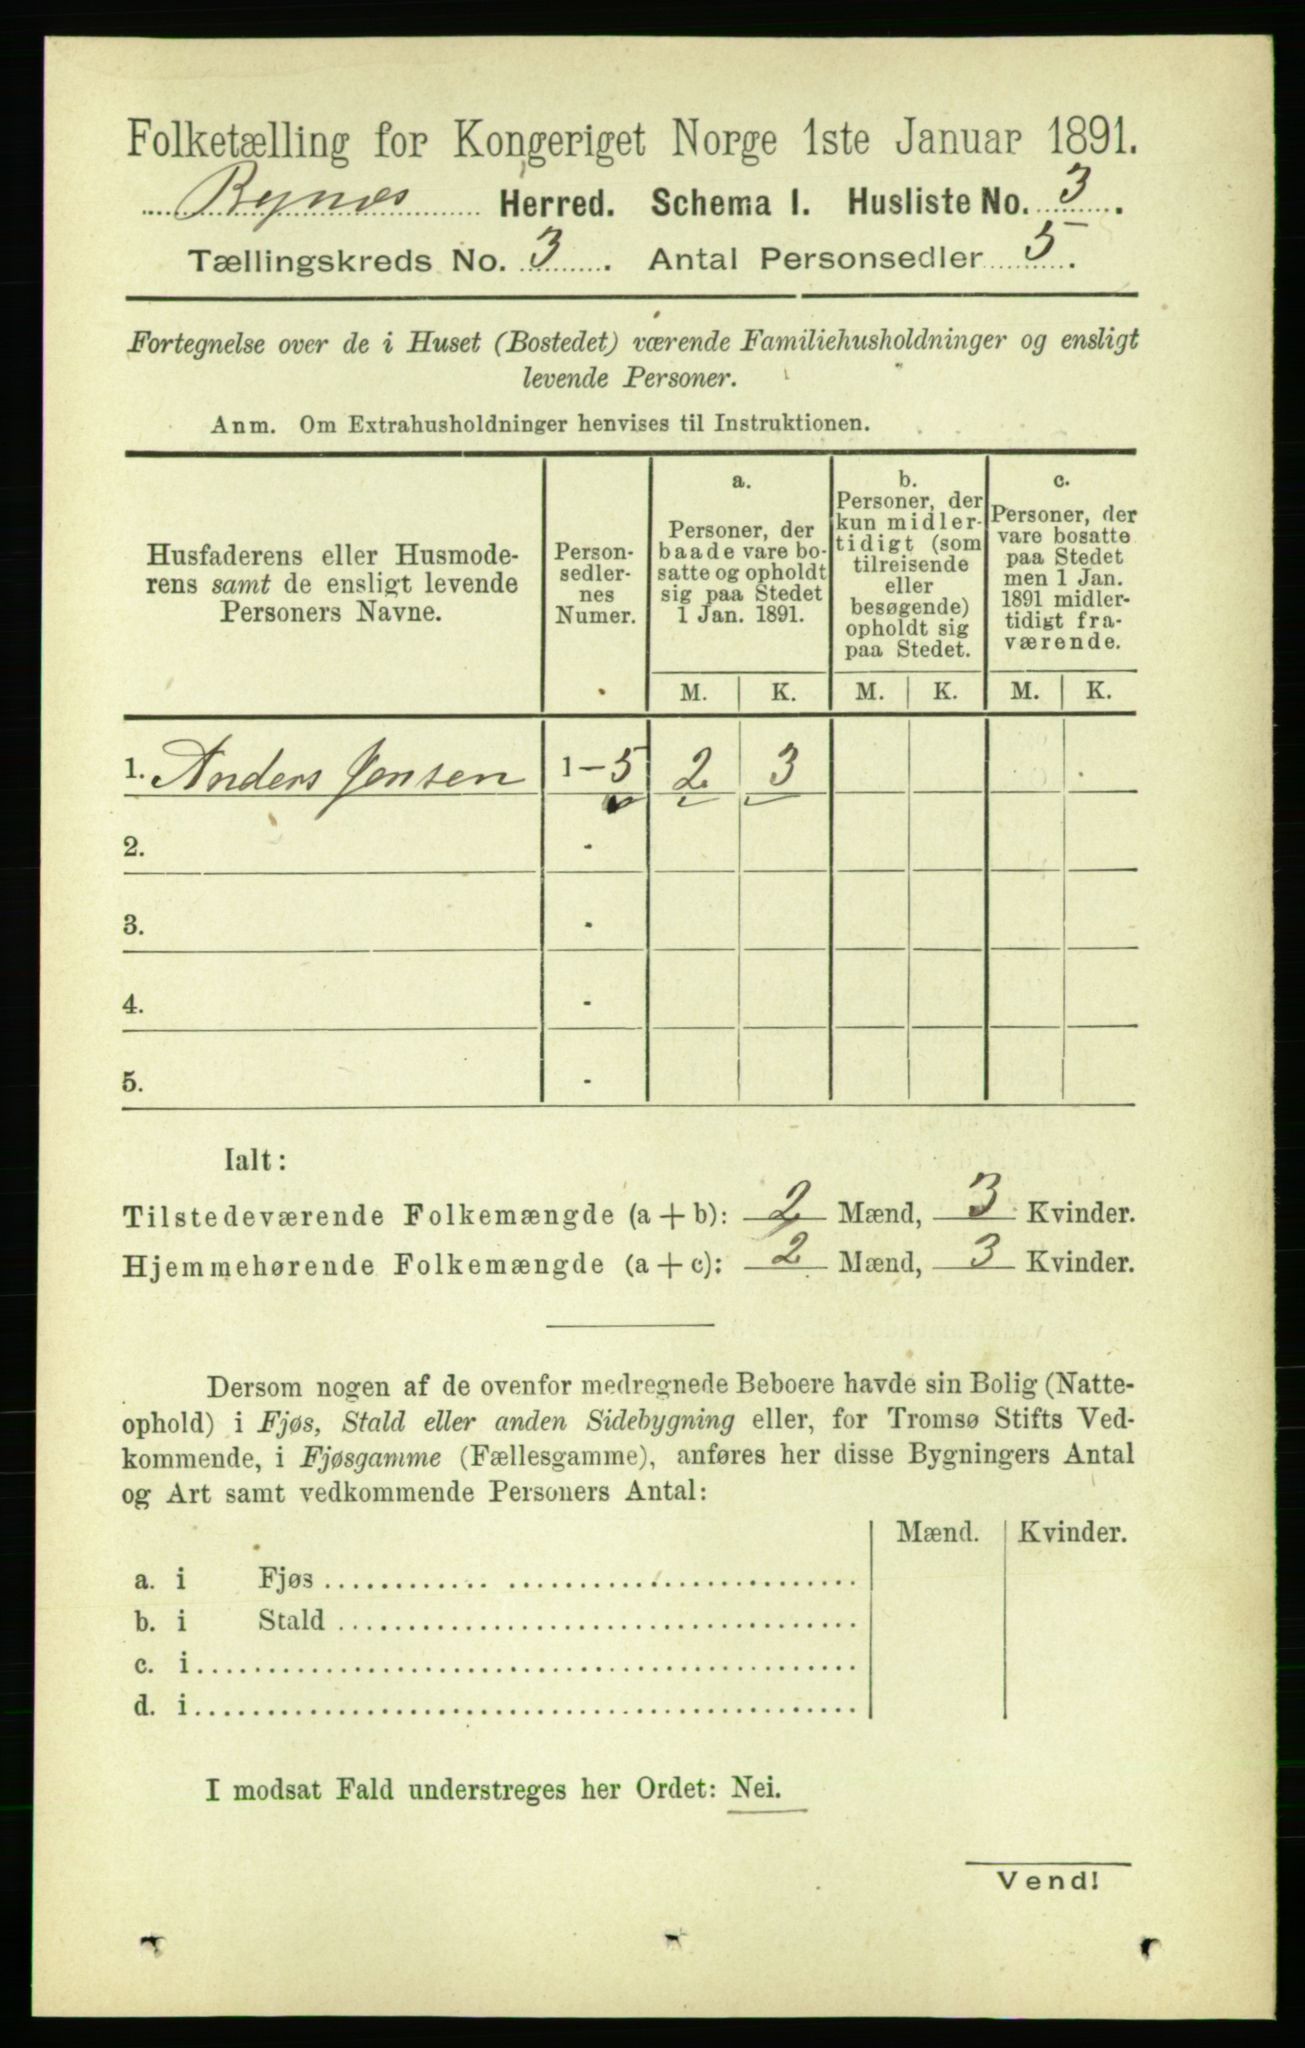 Folketælling for Kongeriget Norge 1ste Januar 1891.
Bynes Herred. Schema I. Husliste No. 3.
Tællingskreds No. 3. Antal Personsedler 5.
Fortegnelse over de i Huset (Bostedet) værende Familiehusholdninger og ensligt
levende Personer.
Anm. Om Extrahusholdninger henvises til Instruktionen.
Husfaderens eller Husmode-
rens samt de ensligt levende
Personers Navne.
Person-
sedler-
nes
Numer.
a.
Personer, der
baade vare bo-
satte og opholdt
sig paa Stedet
1 Jan. 1891.
b.
Personer, der
kun midler-
tidigt (som
tilreisende
eller
besøgende)
opholdt sig
paa Stedet.
c.
Personer, der
vare bosatte
paa Stedet
men 1 Jan.
1891 midler-
tidigt fra-
værende.
M. K. M. K. M. K.
1. Anders Jensen 1-5 2 3
2. -
3. -
4. -
5. -
Ialt:
Tilstedeværende Folkemængde (a + b): 2 Mænd, 3 Kvinder.
Hjemmehørende Folkemængde (a + c): 2 Mænd, 3 Kvinder.
Dersom nogen af de ovenfor medregnede Beboere havde sin Bolig (Natte-
ophold) i Fjøs, Stald eller anden Sidebygning eller, for Tromsø Stifts Ved-
kommende, i Fjøsgamme (Fællesgamme), anføres her disse Bygningers Antal
og Art samt vedkommende Personers Antal:
Mænd. Kvinder.
a. i Fjøs
b. i Stald
c. i
d. i
I modsat Fald understreges her Ordet: Nei.
Vend!